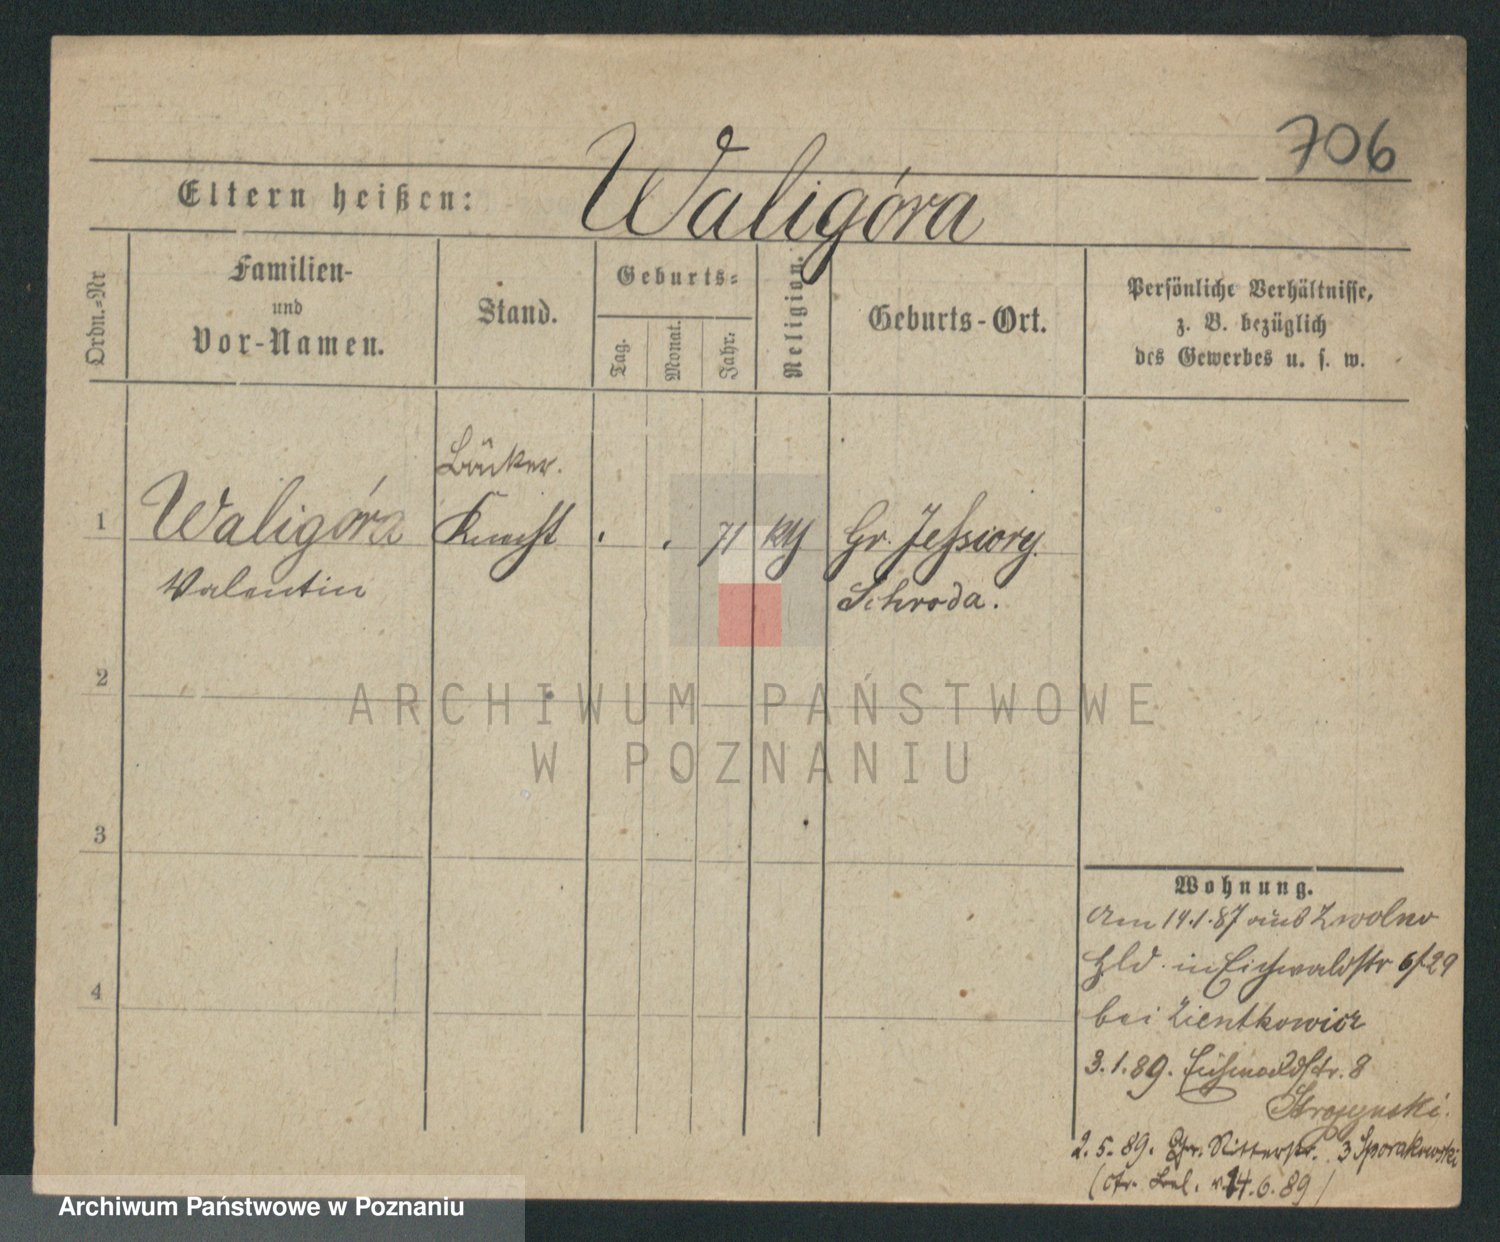 706
Eltern heißen: Waligóra
Ordn.-Nr
Familien-
und
Vor-Namen.
Stand.
Geburts-
Tag.
Monat.
Jahr.
Religion.
Geburts-Ort.
Persönliche Verhältnisse,
z. B. bezüglich
des Gewerbes u. s. w.
Bäcker.
1 Waligóra Knecht . . 71 kth Gr. Jessiory
Valentin Schroda.
2
ARCHIWUM PAŃSTWOWE
W POZNANIU
3
4
Wohnung.
Am 14.1.87 aus Zwolno
Hld. in Eichwaldstr 6/29
bei Zientkowicz
3.1.89. Eichwaldstr. 8
2.5.89. Ritterstr. 3 Sporakowski
14.6.89)
Archiwum Państwowe w Poznaniu